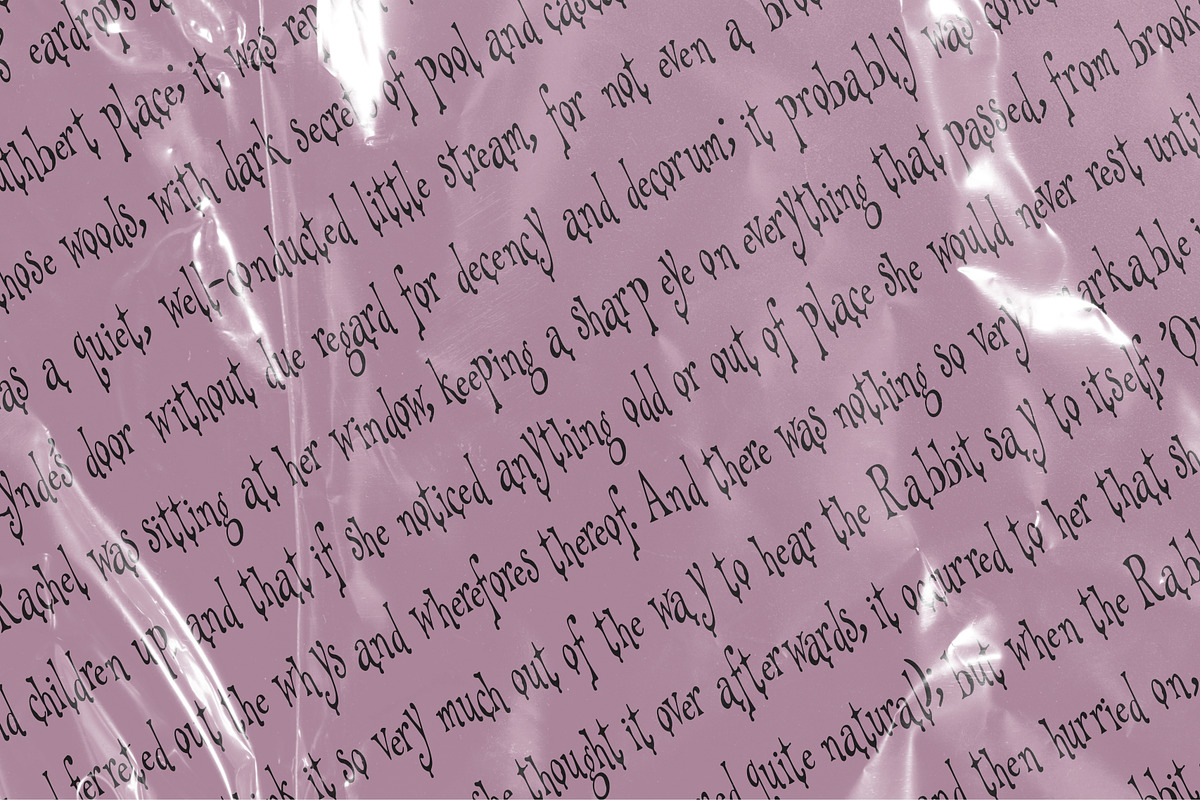 s eardrops a
uthbert place; it was rep
those woods, with dark secrets of pool and casca
as a quiet, well-conducted little stream, for not even a broo
Lynde's door without due regard for decency and decorum; it probably was con
Rachel was sitting at her window, keeping a sharp eye on everything that passed, from brook
nd children up, and that if she noticed anything odd or out of place she would never rest until
d ferreted out the whys and wherefores thereof. And there was nothing so very remarkable i
think it so very much out of the way to hear the Rabbit say to itself, 'O
he thought it over afterwards, it occurred to her that sh
ed quite natural); but when the Rabb
nd then hurried on,
bbit